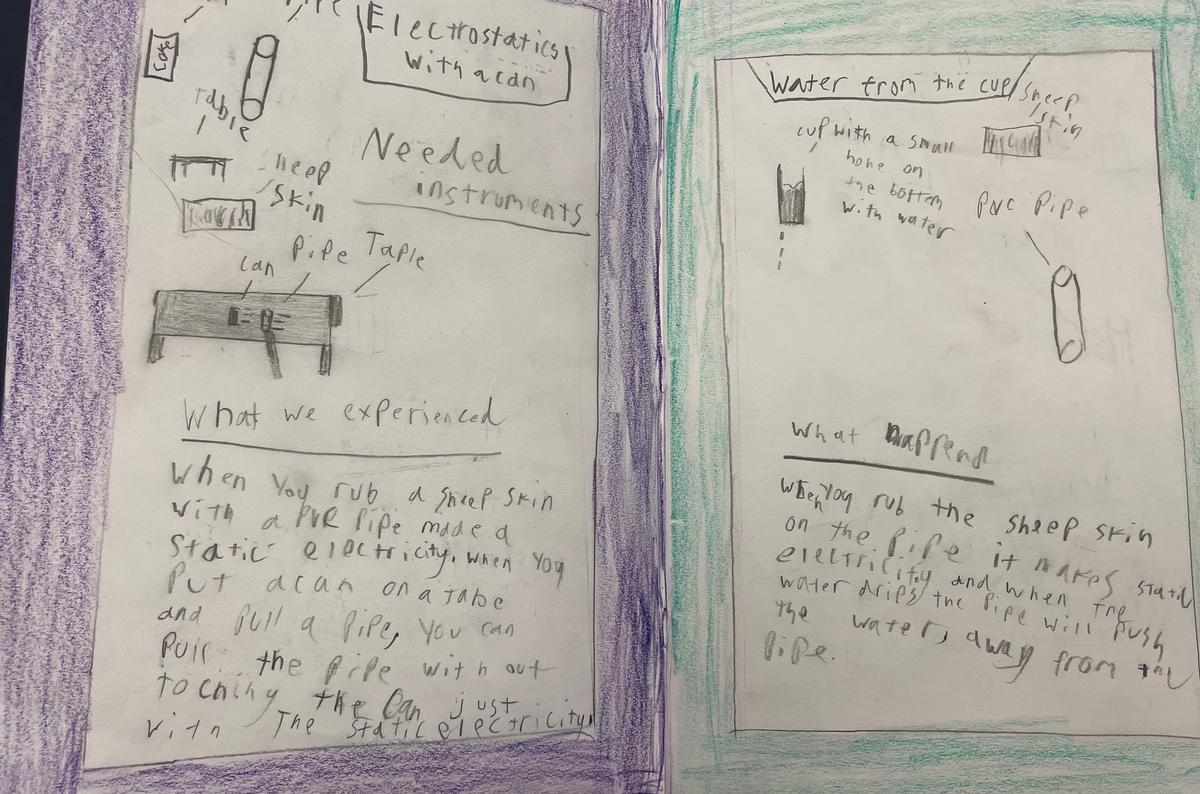 Pipe
Coke
Electrostatics
with a can
Table
Needed
instruments
sheep
skin
can
Pipe
Taple
What we experienced
When you rub a sheep skin
with a PVR Pipe made a
static electricity. when you
Put a can on a tabe
and pull a pipe, you can
Pull the pipe with out
toching the can just
with The static electricity.
Water from the cup
sheep
skin
cup with a small
hone on
the bottem
with water
PVC Pipe
What happend
When you rub the sheep skin
on the pipe it makes static
electricity and when the
water drips the pipe will push
the water, away from the
Pipe.